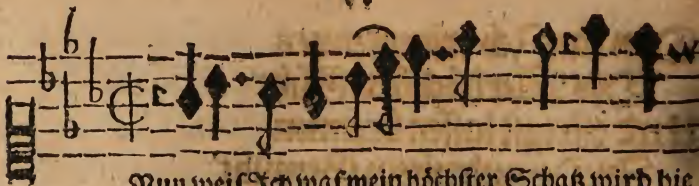 Nun weiß Ich was mein höchster Schatz wird hie